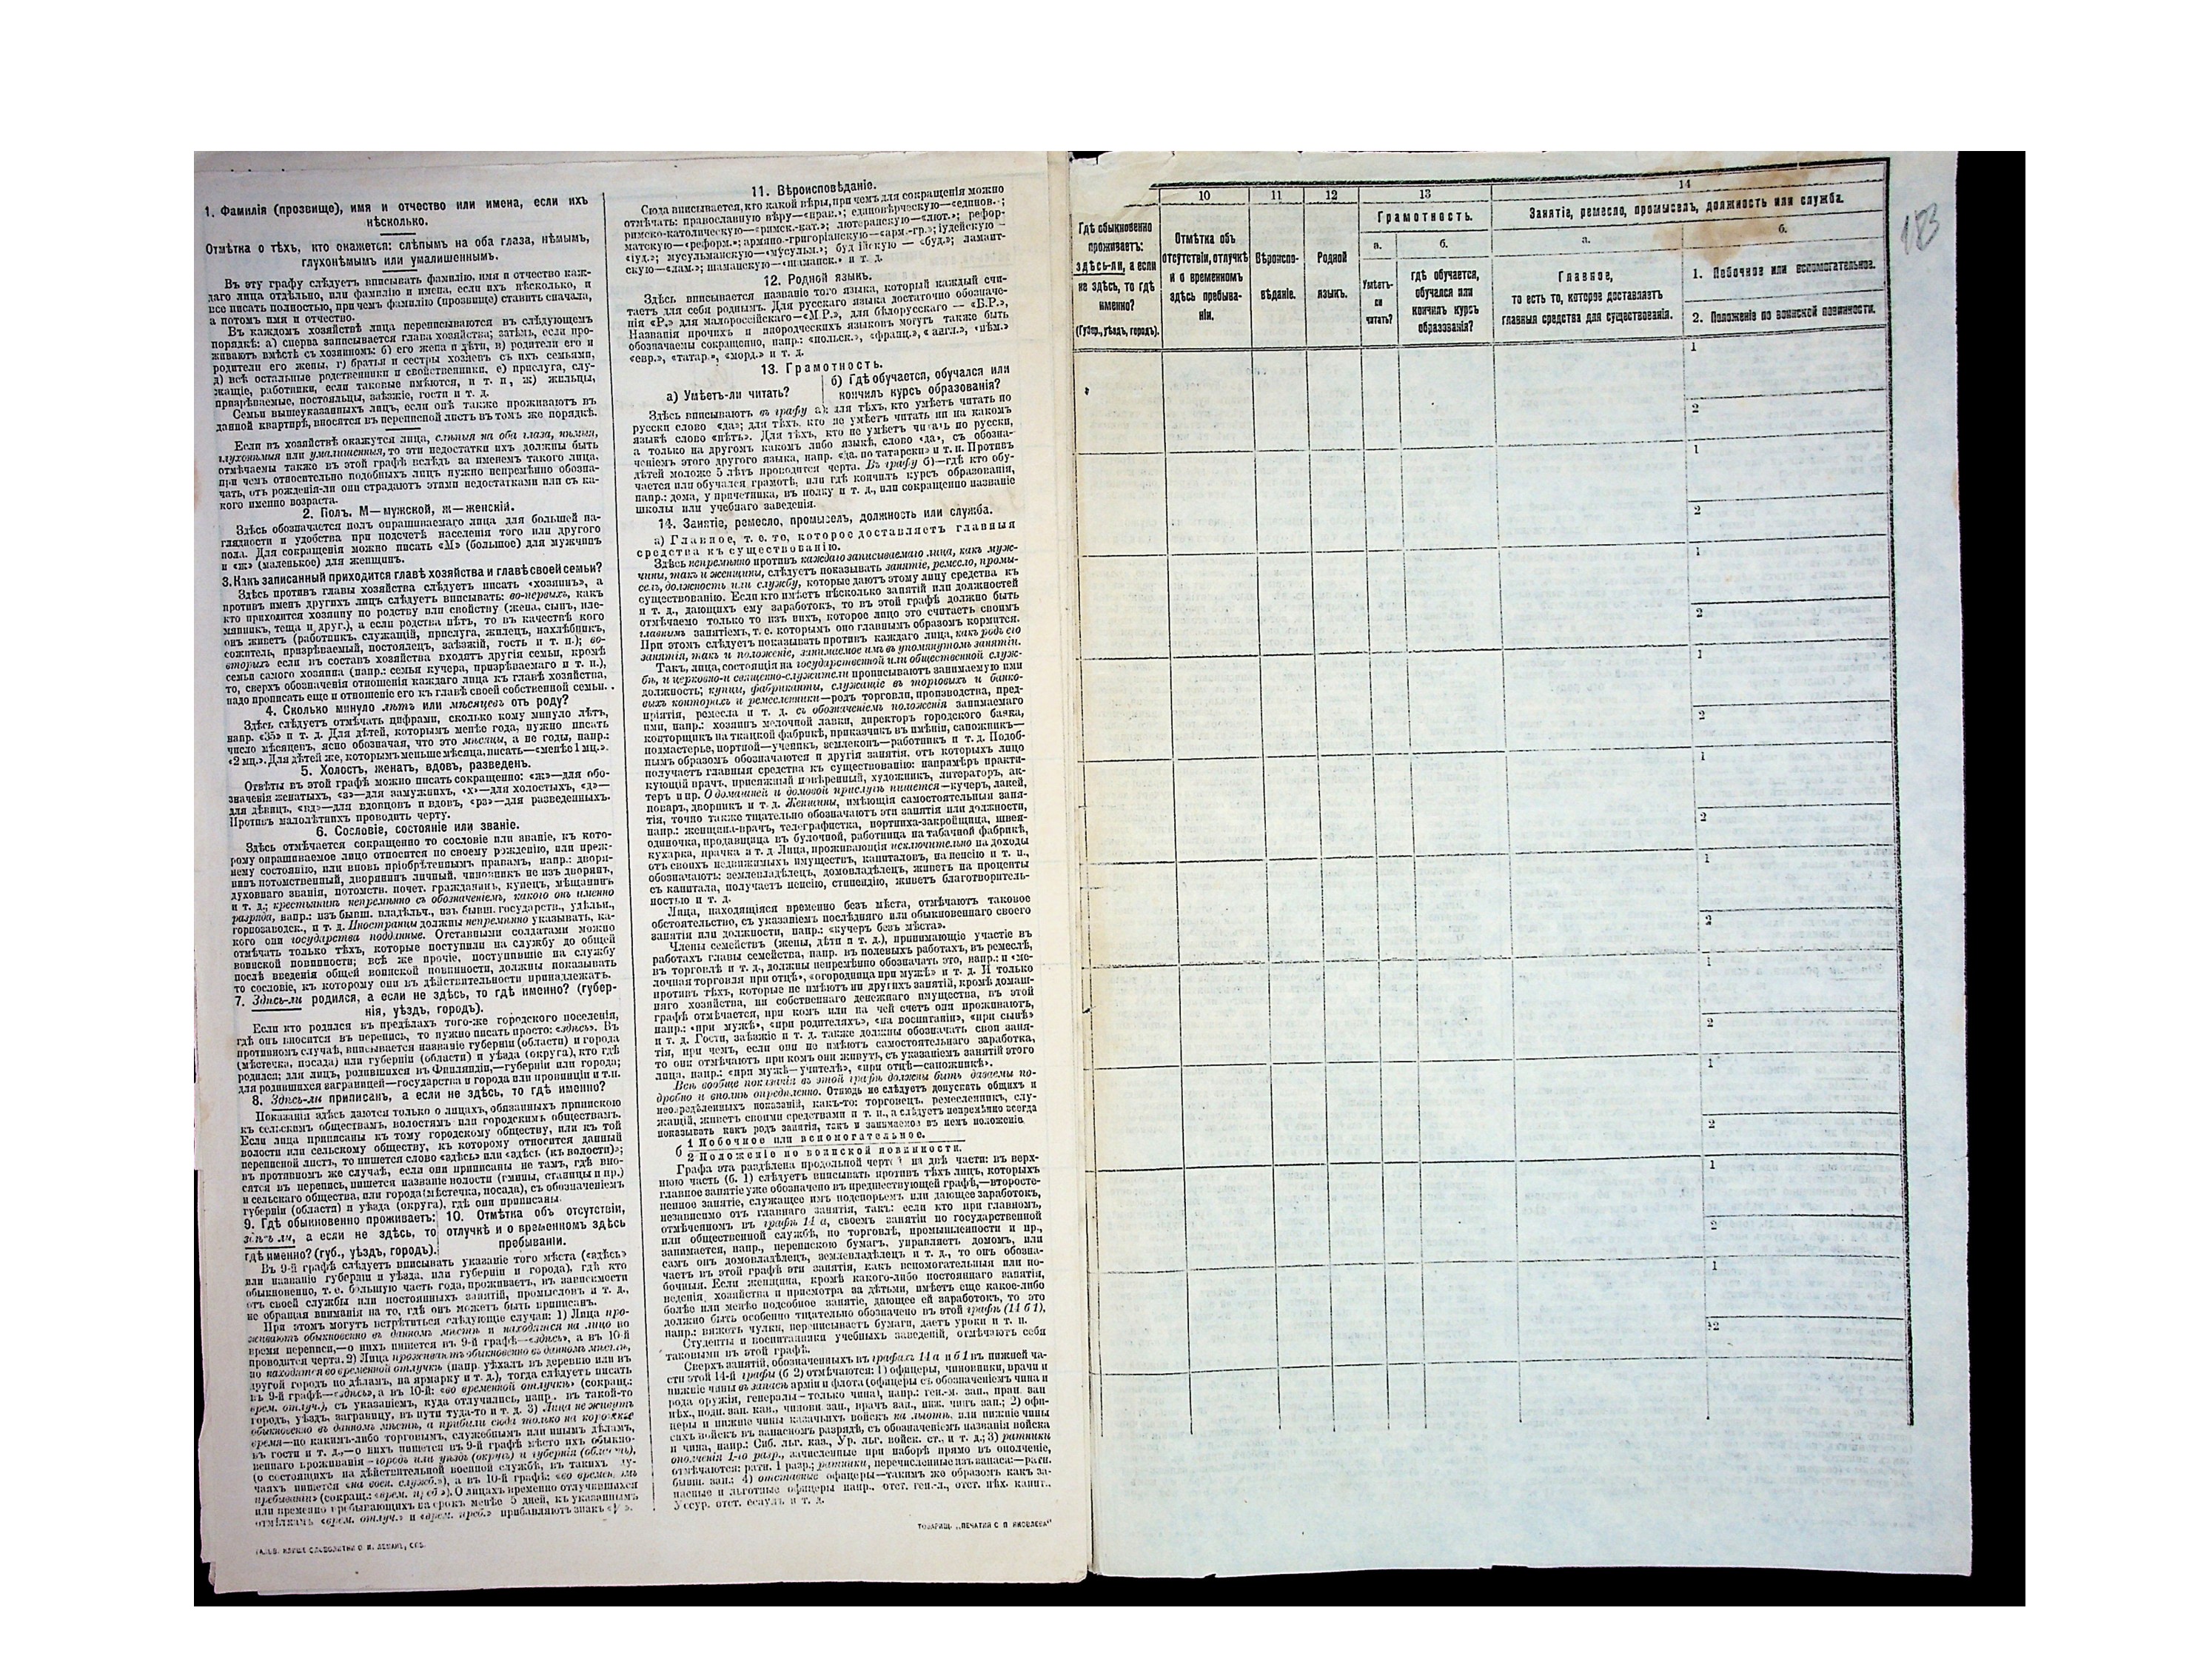 1. Фамилія (прозвище), имя и отчество или имена, если ихъ
нѣсколько.
Отмѣтка о тѣхъ, кто окажется: слѣпымъ на оба глаза, нѣмымъ,
глухонѣмымъ или умалишеннымъ.
Въ эту графу слѣдуетъ вписывать фамилію, имя и отчество каж-
даго лица отдѣльно, или фамилію и имена, если ихъ нѣсколько, и
все писать полностью, при чемъ фамилію (прозвище) ставить сначала,
а потомъ имя и отчество.
Въ каждомъ хозяйствѣ лица переписываются въ слѣдующемъ
порядкѣ: а) сперва записывается глава хозяйства; затѣмъ, если про-
живаютъ вмѣстѣ съ хозяиномъ: б) его жена и дѣти, в) родители его и
родители его жены, г) братья и сестры хозяевъ съ ихъ семьями,
д) всѣ остальные родственники и свойственники, е) прислуга, слу-
жащіе, работники, если таковые имѣются, и т. п., ж) жильцы,
призрѣваемые, постояльцы, заѣзжіе, гости и т. д.
Семьи вышеуказанныхъ лицъ, если онѣ также проживаютъ въ
данной квартирѣ, вносятся въ переписной листъ въ томъ же порядкѣ.
Если въ хозяйствѣ окажутся лица, слѣпыя на оба глаза, нѣмыя,
глухонѣмыя или умалишенныя, то эти недостатки ихъ должны быть
отмѣчаемы также въ этой графѣ вслѣдъ за именемъ такого лица,
при чемъ относительно подобныхъ лицъ нужно непремѣнно обозна-
чать, отъ рожденія-ли они страдаютъ этими недостатками или съ ка-
кого именно возраста.
2. Полъ. М—мужской, ж—женскій.
Здѣсь обозначается полъ опрашиваемаго лица для большей на-
глядности и удобства при подсчетѣ населенія того или другого
пола. Для сокращенія можно писать «М» (большое) для мужчинъ
и «ж» (маленькое) для женщинъ.
3. Какъ записанный приходится главѣ хозяйства и главѣ своей семьи?
Здѣсь противъ главы хозяйства слѣдуетъ писать «хозяинъ», а
противъ именъ другихъ лицъ слѣдуетъ вписывать: во-первыхъ, какъ
кто приходится хозяину по родству или свойству (жена, сынъ, пле-
мянникъ, теща и друг.), а если родства нѣтъ, то въ качествѣ кого
онъ живетъ (работникъ, служащій, прислуга, жилецъ, нахлѣбникъ,
сожитель, призрѣваемый, постоялецъ, заѣзжій, гость и т. п.); во-
вторыхъ если въ составъ хозяйства входятъ другія семьи, кромѣ
семьи самого хозяина (напр.: семья кучера, призрѣваемаго и т. п.),
то, сверхъ обозначенія отношенія каждаго лица къ главѣ хозяйства,
надо прописать еще и отношеніе его къ главѣ своей собственной семьи.
4. Сколько минуло лѣтъ или мѣсяцевъ отъ роду?
Здѣсь слѣдуетъ отмѣчать цифрами, сколько кому минуло лѣтъ,
напр. «35» и т. д. Для дѣтей, которымъ менѣе года, нужно писать
число мѣсяцевъ, ясно обозначая, что это мѣсяцы, а не годы, напр.:
«2 мц.». Для дѣтей же, которымъ меньше мѣсяца, писать—«менѣе 1 мц.».
5. Холостъ, женатъ, вдовъ, разведенъ.
Отвѣты въ этой графѣ можно писать сокращенно: «ж»—для обо-
значенія женатыхъ, «з»—для замужнихъ, «х»—для холостыхъ, «д»—
для дѣвицъ, «вд»—для вдовцовъ и вдовъ, «рз»—для разведенныхъ.
Противъ малолѣтнихъ проводить черту.
6. Сословіе, состояніе или званіе.
Здѣсь отмѣчается сокращенно то сословіе или званіе, къ кото-
рому опрашиваемое лицо относится по своему рожденію, или преж-
нему состоянію, или вновь пріобрѣтеннымъ правамъ, напр.: двори-
нинъ потомственный, дворянинъ личный, чиновникъ не изъ дворянъ,
духовнаго званія, потомств. почет. гражданинъ, купецъ, мѣщанинъ
и т. д.; крестьянинъ непремѣнно съ обозначеніемъ, какого онъ именно
разряда, напр.: изъ бывш. владѣльч., изъ бывш. государств., удѣльн.,
горнозаводск., и т. д. Иностранцы должны непремѣнно указывать, ка-
кого они государства подданные. Отставными солдатами можно
отмѣчать только тѣхъ, которые поступили на службу до общей
воинской повинности; всѣ же прочіе, поступившіе на службу
послѣ введенія общей воинской повинности, должны показывать
то сословіе, къ которому они въ дѣйствительности принадлежатъ.
7. Здѣсь-ли родился, а если не здѣсь, то гдѣ именно? (губер-
нія, уѣздъ, городъ).
Если кто родился въ предѣлахъ того-же городского поселенія,
гдѣ онъ вносится въ перепись, то нужно писать просто: «здѣсь». Въ
противномъ случаѣ, вписывается названіе губерніи (области) и города
(мѣстечка, посада) или губерніи (области) и уѣзда (округа), кто гдѣ
родился; для лицъ, родившихся въ Финляндіи,—губерніи или города;
для родившихся заграницей—государства и города или провинціи и т.п.
8. Здѣсь-ли приписанъ, а если не здѣсь, то гдѣ именно?
Показанія здѣсь даются только о лицахъ, обязанныхъ припискою
къ сельскимъ обществамъ, волостямъ или городскимъ обществамъ.
Если лица приписаны къ тому городскому обществу, или къ той
волости или сельскому обществу, къ которому относится данный
переписной листъ, то пишется слово «здѣсь» или «здѣсь (къ волости)»;
въ противномъ же случаѣ, если они приписаны не тамъ, гдѣ вно-
сятся въ перепись, пишется названіе волости (гмины, станицы и пр.)
и сельскаго общества, или города (мѣстечка, посада), съ обозначеніемъ
губерніи (области) и уѣзда (округа), гдѣ они приписаны.
9. Гдѣ обыкновенно проживаетъ:
здѣсь ли, а если не здѣсь, то
гдѣ именно? (губ., уѣздъ, городъ).
10. Отмѣтка объ отсутствіи,
отлучкѣ и о временномъ здѣсь
пребываніи.
Въ 9-й графѣ слѣдуетъ вписывать указаніе того мѣста («здѣсь»
или названіе губерніи и уѣзда, или губерніи и города), гдѣ кто
обыкновенно, т. е. большую часть года, проживаетъ, въ зависимости
отъ своей службы или постоянныхъ занятій, промысловъ и т. д.,
не обращая вниманія на то, гдѣ онъ можетъ быть приписанъ.
При этомъ могутъ встрѣтиться слѣдующіе случаи: 1) Лица про-
живаютъ обыкновенно въ данномъ мѣстѣ и находятся на лицо во
время переписи,—о нихъ пишется въ 9-й графѣ—«здѣсь», а въ 10-й
проводится черта. 2) Лица проживаютъ обыкновенно въ данномъ мѣстѣ,
но находятся во временной отлучкѣ (напр. уѣхалъ въ деревню или въ
другой городъ по дѣламъ, на ярмарку и т. д.), тогда слѣдуетъ писать
въ 9-й графѣ—«здѣсь», а въ 10-й: «во временной отлучкѣ» (сокращ.:
врем. отлуч.), съ указаніемъ, куда отлучились, напр. въ такой-то
городъ, уѣздъ, заграницу, въ пути туда-то и т. д. 3) Лица не живутъ
обыкновенно въ данномъ мѣстѣ, а прибыли сюда только на короткое
время—по какимъ-либо торговымъ, служебнымъ или инымъ дѣламъ,
въ гости и т. д.,—о нихъ пишется въ 9-й графѣ мѣсто ихъ обыкно-
веннаго проживанія—городъ или уѣздъ (округъ) и губернія (область),
(о состоящихъ на дѣйствительной военной службѣ, въ такихъ слу-
чаяхъ пишется «на воен. службѣ»), а въ 10-й графѣ: «во времен.
пребываніи» (сокращ.: «врем. преб.»). О лицахъ временно отлучившихся
или временно пребывающихъ на срокъ менѣе 5 дней, къ указаннымъ
отмѣткамъ «врем. отлуч.» и «врем. преб.» прибавляютъ знакъ
11. Вѣроисповѣданіе.
Сюда вписывается, кто какой вѣры, при чемъ для сокращенія можно
отмѣчать: православную вѣру—«прав.»; единовѣрческую—«единов.»;
римско-католическую—«римск.-кат.»; лютеранскую—«лют.»; рефор-
матскую—«реформ.»; армяно-григоріанскую—«арм.-гр.»; іудейскую —
«іуд.»; мусульманскую—«мусульм.»; буддійскую — «буд.»; ламаит-
скую—«лам.»; шаманскую—«шаманск.» и т. д.
12. Родной языкъ.
Здѣсь вписывается названіе того языка, который каждый счи-
таетъ для себя роднымъ. Для русскаго языка достаточно обозначе-
нія «Р.» для малороссійскаго—«М.Р.», для бѣлорусскаго — «Б.Р.»,
Названія прочихъ и инородческихъ языковъ могутъ также быть
обозначаемы сокращенно, напр.: «польск.», «франц.», «англ.», «нѣм.»
«евр.», «татар.», «морд.» и т. д.
13. Грамотность.
а) Умѣетъ-ли читать?
б) Гдѣ обучается, обучался или
кончилъ курсъ образованія?
Здѣсь вписываютъ въ графу а): для тѣхъ, кто умѣетъ читать по
русски слово «да»; для тѣхъ, кто не умѣетъ читать ни на какомъ
языкѣ слово «нѣтъ». Для тѣхъ, кто не умѣетъ читать по русски,
а только на другомъ какомъ либо языкѣ, слово «да», съ обозна-
ченіемъ этого другого языка, напр. «да. по татарски» и т. п. Противъ
дѣтей моложе 5 лѣтъ проводится черта. Въ графу б)—гдѣ кто обу-
чается или обучался грамотѣ, или гдѣ кончилъ курсъ образованія,
напр.: дома, у причетника, въ полку и т. д., или сокращенно названіе
школы или учебнаго заведенія.
14. Занятіе, ремесло, промыселъ, должность или служба.
а) Главное, т. е. то, которое доставляетъ главныя
средства къ существованію.
Здѣсь непремѣнно противъ каждаго записываемаго лица, какъ муж-
чины, такъ и женщины, слѣдуетъ показывать занятіе, ремесло, промы-
селъ, должность или службу, которые даютъ этому лицу средства къ
существованію. Если кто имѣетъ нѣсколько занятій или должностей
и т. д., дающихъ ему заработокъ, то въ этой графѣ должно быть
отмѣчаемо только то изъ нихъ, которое лицо это считаетъ своимъ
главнымъ занятіемъ, т. е. которымъ оно главнымъ образомъ кормится.
При этомъ слѣдуетъ показывать противъ каждаго лица, какъ родъ его
занятія, такъ и положеніе, занимаемое имъ въ упомянутомъ занятіи.
Такъ, лица, состоящія на государственной или общественной служ-
бѣ, и церковно-и священно-служители прописываютъ занимаемую ими
должность; купцы, фабриканты, служащіе въ торговыхъ и банко-
выхъ конторахъ и ремесленники—родъ торговли, производства, пред-
пріятія, ремесла и т. д. съ обозначеніемъ положенія занимаемаго
ими, напр.: хозяинъ мелочной лавки, директоръ городского банка,
конторщикъ на ткацкой фабрикѣ, приказчикъ въ имѣніи, сапожникъ—
подмастерье, портной—ученикъ, землекопъ—работникъ и т. д. Подоб-
нымъ образомъ обозначаются и другія занятія, отъ которыхъ лицо
получаетъ главныя средства къ существованію: напримѣръ практи-
кующій врачъ, присяжный повѣренный, художникъ, литераторъ, ак-
теръ и пр. О домашней и домовой прислугѣ пишется—кучеръ, лакей,
поваръ, дворникъ и т. д. Женщины, имѣющія самостоятельныя заня-
тія, точно также тщательно обозначаютъ эти занятія или должности,
напр.: женщина-врачъ, телеграфистка, портниха-закройщица, швея-
одиночка, продавщица въ булочной, работница на табачной фабрикѣ,
кухарка, прачка и т. д. Лица, проживающія исключительно на доходы
отъ своихъ недвижимыхъ имуществъ, капиталовъ, на пенсію и т. п.,
обозначаютъ: землевладѣлецъ, домовладѣлецъ, живетъ на проценты
съ капитала, получаетъ пенсію, стипендію, живетъ благотворитель-
ностью и т. д.
Лица, находящіяся временно безъ мѣста, отмѣчаютъ таковое
обстоятельство, съ указаніемъ послѣдняго или обыкновеннаго своего
занятія или должности, напр.: «кучеръ безъ мѣста».
Члены семействъ (жены, дѣти и т. д.), принимающіе участіе въ
работахъ главы семейства, напр. въ полевыхъ работахъ, въ ремеслѣ,
въ торговлѣ и т. д., должны непремѣнно обозначать это, напр.: и «ме-
лочная торговля при отцѣ», «огородница при мужѣ» и т. д. И только
противъ тѣхъ, которые не имѣютъ ни другихъ занятій, кромѣ домаш-
няго хозяйства, ни собственнаго денежнаго имущества, въ этой
графѣ отмѣчается, при комъ или на чей счетъ они проживаютъ,
напр.: «при мужѣ», «при родителяхъ», «на воспитаніи», «при сынѣ»
и т. д. Гости, заѣзжіе и т. д. также должны обозначать свои заня-
тія, при чемъ, если они не имѣютъ самостоятельнаго заработка,
то они отмѣчаютъ при комъ они живутъ, съ указаніемъ занятій этого
лица, напр.: «при мужѣ—учителѣ», «при отцѣ—сапожникѣ».
Всѣ вообще показанія въ этой графѣ должны быть даваемы по-
дробно и вполнѣ опредѣленно. Отнюдь не слѣдуетъ допускать общихъ и
неопредѣленныхъ показаній, какъ-то: торговецъ, ремесленникъ, слу-
жащій, живетъ своими средствами и т. п., а слѣдуетъ непремѣнно всегда
показывать какъ родъ занятія, такъ и занимаемое въ немъ положеніе.
б 1 Побочное или вспомогательное.
2 Положеніе по воинской повинности.
Графа эта раздѣлена продольной чертой на двѣ части: въ верх-
нюю часть (б. 1) слѣдуетъ вписывать противъ тѣхъ лицъ, которыхъ
главное занятіе уже обозначено въ предшествующей графѣ,—второсте-
пенное занятіе, служащее имъ подспорьемъ или дающее заработокъ,
независимо отъ главнаго занятія, такъ: если кто при главномъ,
отмѣченномъ въ графѣ 14 а, своемъ занятіи по государственной
или общественной службѣ, по торговлѣ, промышленности и пр.,
занимается, напр., перепискою бумагъ, управляетъ домомъ, или
самъ онъ домовладѣлецъ, землевладѣлецъ и т. д., то онъ обозна-
чаетъ въ этой графѣ эти занятія, какъ вспомогательныя или по-
бочныя. Если женщина, кромѣ какого-либо постояннаго занятія,
веденія хозяйства и присмотра за дѣтьми, имѣетъ еще какое-либо
болѣе или менѣе подсобное занятіе, дающее ей заработокъ, то это
должно быть особенно тщательно обозначено въ этой графѣ (14 б 1),
напр.: вяжетъ чулки, переписываетъ бумаги, даетъ уроки и т. п.
Студенты и воспитанники учебныхъ заведеній, отмѣчаютъ себя
таковыми въ этой графѣ.
Сверхъ занятій, обозначенныхъ въ графахъ 14 а и б 1 въ нижней ча-
сти этой 14-й графы (б 2) отмѣчаются: 1) офицеры, чиновники, врачи и
нижніе чины въ запасѣ арміи и флота (офицеры съ обозначеніемъ чина и
рода оружія, генералы—только чина), напр.: ген.-м. зап., прап. зап
пѣх., подп. зап. кав., чиновн. зап., врачъ зап., ниж. чинъ зап.; 2) офи-
церы и нижніе чины казачьихъ войскъ на льготѣ, или нижніе чины
сихъ войскъ въ запасномъ разрядѣ, съ обозначеніемъ названія войска
и чина, напр.: Сиб. льг. каз., Ур. льг. войск. ст. и т. д.; 3) ратники
ополченія 1-го разр., зачисленные при наборѣ прямо въ ополченіе,
отмѣчаются: ратн. 1 разр.; ратники, перечисленные изъ запаса:—ратн.
бывш. зап.: 4) отставные офицеры—такимъ же образомъ какъ за-
пасные и льготные офицеры напр., отст. ген.-л., отст. пѣх. капит.,
Уссур. отст. есаулъ и т. д.
ТОВАРИЩ. „ПЕЧАТНИ С. П. ЯКОВЛЕВА“
183
10 11 12 13 14
Гдѣ обыкновенно
проживаетъ:
здѣсь-ли, а если
не здѣсь, то гдѣ
именно?
(Губер., уѣздъ, городъ).
Отмѣтка объ
отсутствіи, отлучкѣ
и о временномъ
здѣсь пребыва-
ніи.
Вѣроиспо-
вѣданіе.
Родной
языкъ.
Грамотность.
а.
Умѣетъ-
ли
читать?
б.
гдѣ обучается,
обучался или
кончилъ курсъ
образованія?
Занятіе, ремесло, промыселъ, должность или служба.
а.
Главное,
то есть то, которое доставляетъ
главныя средства для существованія.
б.
1. Побочное или вспомогательное.
2. Положеніе по воинской повинности.
1
2
1
2
1
2
1
2
1
2
1
2
1
2
1
2
1
2
1
2